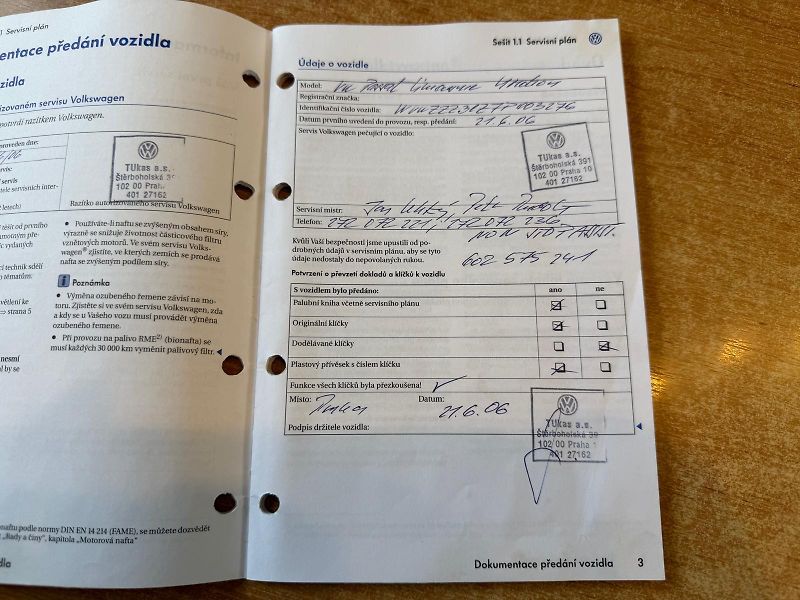 1 Servisní plán
mentace předání vozidla
zidla
rizovaném servisu Volkswagen
motvrdí razítkem Volkswagen.
proveden dne:
TUkas a.s.
Štěrboholská 3
102 00 Praha
401 27162
Razítko autorizovaného servisu Volkswagen
• Používáte-li naftu se zvýšeným obsahem síry,
výrazně se snižuje životnost částicového filtru
vznětových motorů. Ve svém servisu Volks-
wagen zjistíte, ve kterých zemích se prodává
nafta se zvýšeným podílem síry.
Poznámka
• Výměna ozubeného řemene závisí na mo-
toru. Zjistěte si ve svém servisu Volkswagen, zda
a kdy se u Vašeho vozu musí provádět výměna
ozubeného řemene.
• Při provozu na palivo RME2) (bionafta) se
musí každých 30 000 km vyměnit palivový filtr.
těšit od prvního
í technik sdělí
tématům.
světlení ke
⇒ straně 5
nesmí
onaftu podle normy DIN EN 14 214 (FAME), se můžete dozvědět
"Rady a činy", kapitola „Motorová nafta"
dla
Sešit 1.1 Servisní plán
Údaje o vozidle
Model: VW Passat
Registrační značka:
Identifikační číslo vozidla:
Datum prvního uvedení do provozu, resp. předání: 21.6.06
Servis Volkswagen pečující o vozidlo:
TUkas a.s.
Štěrboholská 391
102 00 Praha 10
401 27162
Servisní mistr: Petr
Telefon: 272 072 221, 272 072 236
NON STOP ASSIST.
602 575 241
Kvůli Vaší bezpečnosti jsme upustili od po-
drobných údajů v servisním plánu, aby se tyto
údaje nedostaly do nepovolaných rukou.
Potvrzení o převzetí dokladů a klíčků k vozidlu
S vozidlem bylo předáno: ano ne
Palubní kniha včetně servisního plánu
Originální klíčky
Dodělávané klíčky
Plastový přívěsek s číslem klíčku
Funkce všech klíčků byla přezkoušena!
Místo: Praha Datum: 21.6.06
Podpis držitele vozidla:
TUkas a.s.
Štěrboholská 39
102 00 Praha 1
401 27162
Dokumentace předání vozidla 3